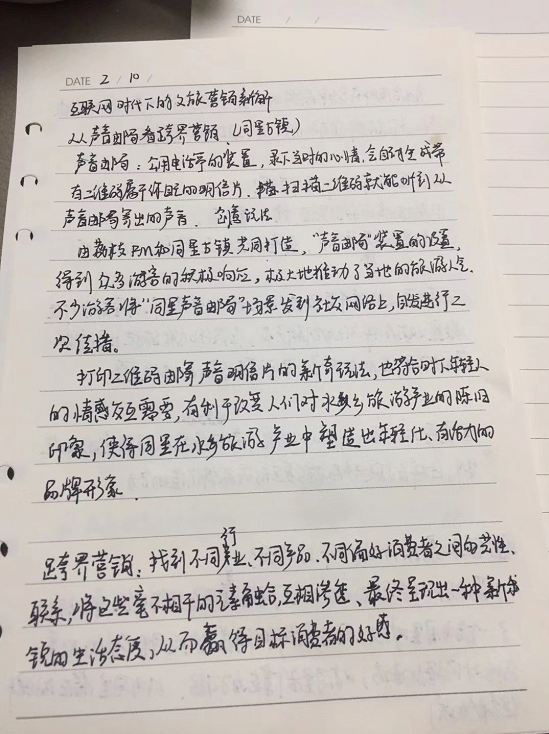 DATE / /
DATE 2 / 10 /
互联网时代下的文旅营销新解
从声音邮局看跨界营销 (同里古镇)
声音邮局: 公用电话亭的装置, 录下当时的心情, 会自动生成带
有二维码属于你自己的明信片. 扫描二维码就能听到从
声音邮局寄出的声音. 创意玩法
由荔枝FM和同里古镇共同打造, "声音邮局"装置的设置,
得到众多游客的积极响应, 极大地推动了当地的旅游人气.
不少游客将"同里声音邮局"场景发到社交网络上, 自发进行二
次传播。
打印二维码邮寄声音明信片的新奇玩法, 也符合时下年轻人
的情感交互需要, 有利于改变人们对水乡旅游产业的陈旧
印象, 使得同里在水乡旅游产业中塑造出年轻化、有活力的
品牌形象.
跨界营销: 找到不同行业、不同产品、不同偏好消费者之间的共性、
联系, 将这些毫不相干的元素融合, 互相渗透、最终呈现出一种新
锐的生活态度, 从而赢得目标消费者的好感。